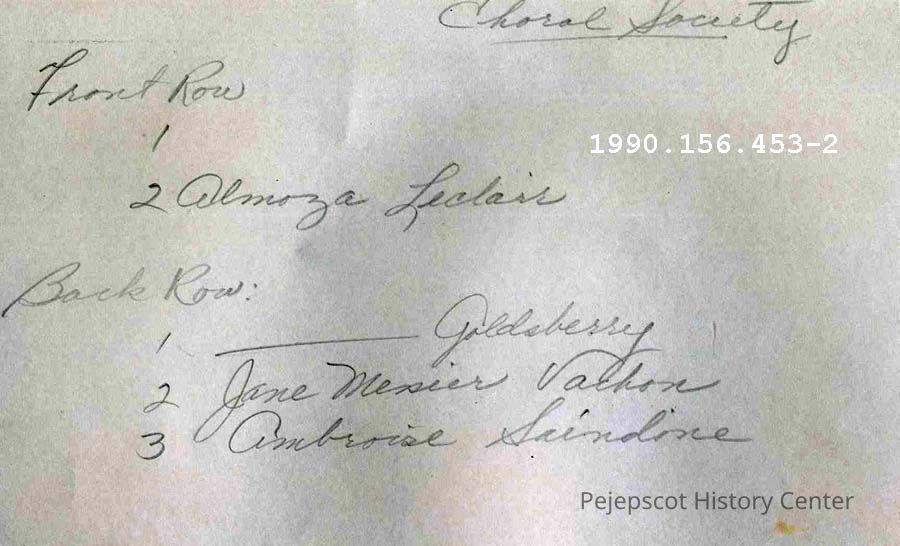 Choral Society
Front Row
1
1990.156.453-2
2 Almoza Leclair
Back Row:
1 ______ Goldsberry
2 Jane Menier Vachon
3 Ambroise Saindone
Pejepscot History Center